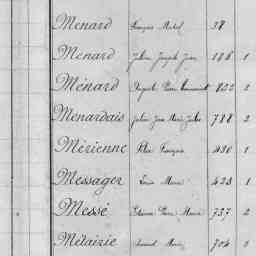 Menard François Michel 38
Menard Julien Joseph Jean 186 1
Ménard Auguste Pierre 822 2
Menardais Julien Jean Marie Jules 788 2
Mérienne Félix François 430 1
Messager Louis Marie 423 1
Messé Etienne Pierre Marie 737 2
Métairie Marie 704 5